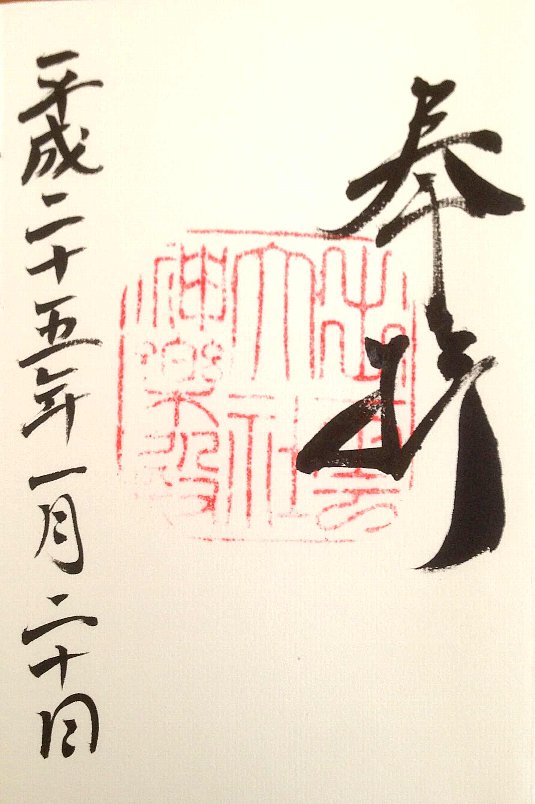 奉拝
出雲
大社
神楽殿
平成二十五年一月二十日